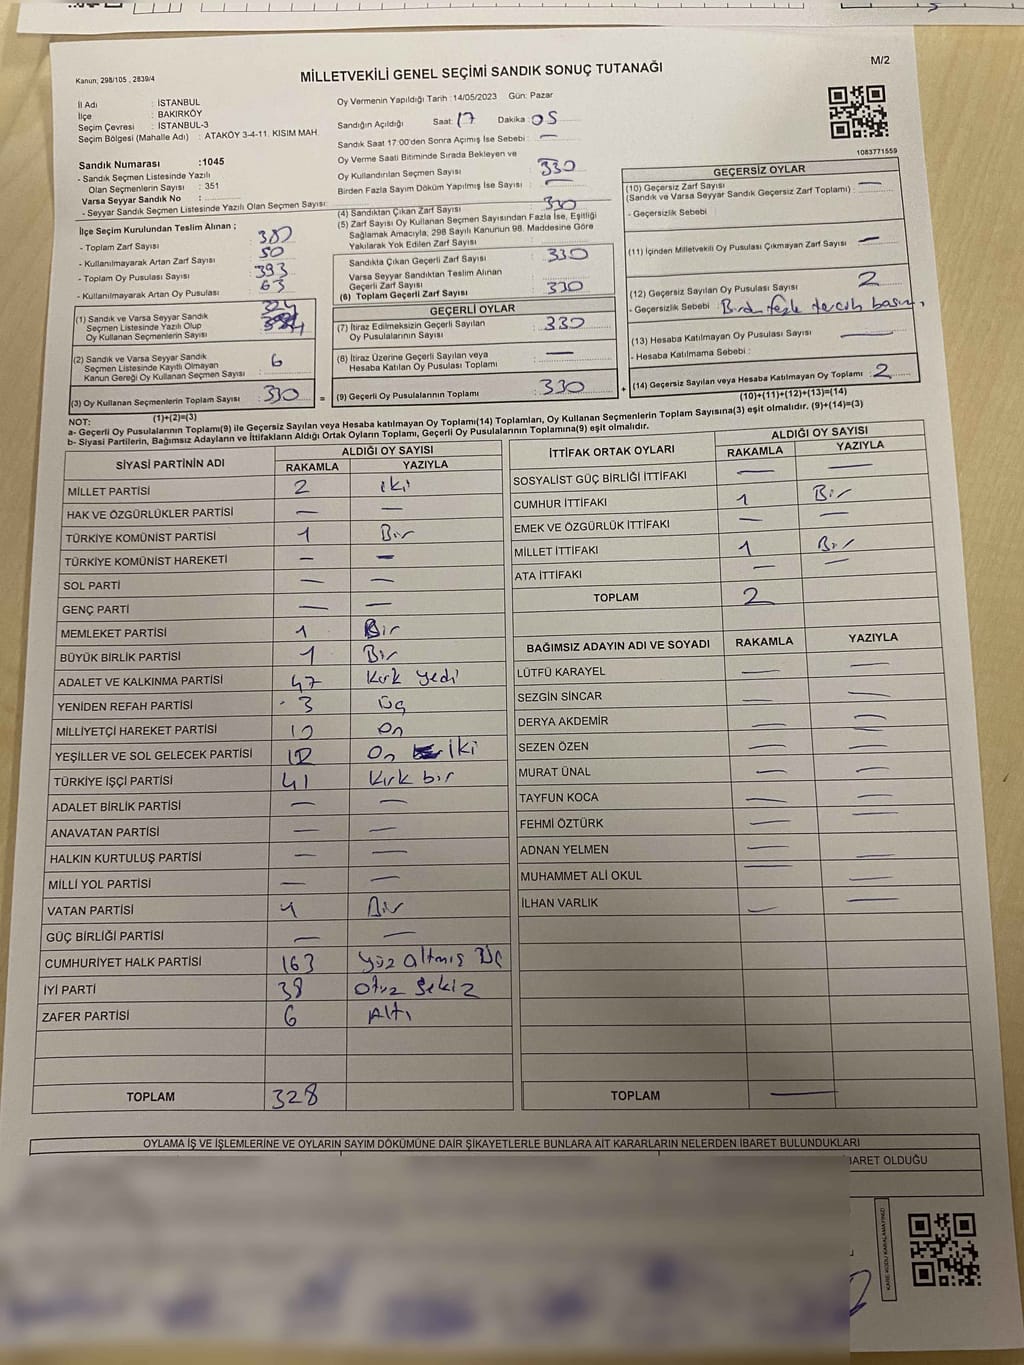 Kanun: 298/105 , 2839/4
MİLLETVEKİLİ GENEL SEÇİMİ SANDIK SONUÇ TUTANAĞI
M/2
İl Adı : İSTANBUL
İlçe : BAKIRKÖY
Seçim Çevresi : İSTANBUL-3
Seçim Bölgesi (Mahalle Adı) : ATAKÖY 3-4-11. KISIM MAH.
Sandık Numarası :1045
- Sandık Seçmen Listesinde Yazılı
Olan Seçmenlerin Sayısı : 351
Varsa Seyyar Sandık No :
- Seyyar Sandık Seçmen Listesinde Yazılı Olan Seçmen Sayısı:
İlçe Seçim Kurulundan Teslim Alınan ;
- Toplam Zarf Sayısı : 380
- Kullanılmayarak Artan Zarf Sayısı : 50
- Toplam Oy Pusulası Sayısı : 393
- Kullanılmayarak Artan Oy Pusulası : 63
(1) Sandık ve Varsa Seyyar Sandık 324
Seçmen Listesinde Yazılı Olup
Oy Kullanan Seçmenlerin Sayısı
(2) Sandık ve Varsa Seyyar Sandık
Seçmen Listesinde Kayıtlı Olmayan 6
Kanun Gereği Oy Kullanan Seçmen Sayısı :
(3) Oy Kullanan Seçmenlerin Toplam Sayısı : 330
(1)+(2)=(3)
Oy Vermenin Yapıldığı Tarih :14/05/2023 Gün: Pazar
Sandığın Açıldığı Saat: 17 Dakika: 05
Sandık Saat 17:00'den Sonra Açılmış İse Sebebi : —
Oy Verme Saati Bitiminde Sırada Bekleyen ve
Oy Kullandırılan Seçmen Sayısı : 330
Birden Fazla Sayım Döküm Yapılmış İse Sayısı : —
(4) Sandıktan Çıkan Zarf Sayısı : 330
(5) Zarf Sayısı Oy Kullanan Seçmen Sayısından Fazla İse, Eşitliği
Sağlamak Amacıyla, 298 Sayılı Kanunun 98. Maddesine Göre
Yakılarak Yok Edilen Zarf Sayısı :
Sandıkta Çıkan Geçerli Zarf Sayısı : 330
Varsa Seyyar Sandıktan Teslim Alınan
Geçerli Zarf Sayısı :
(6) Toplam Geçerli Zarf Sayısı : 330
GEÇERLİ OYLAR
(7) İtiraz Edilmeksizin Geçerli Sayılan
Oy Pusulalarının Sayısı : 330
(8) İtiraz Üzerine Geçerli Sayılan veya
Hesaba Katılan Oy Pusulası Toplamı : —
(9) Geçerli Oy Pusulalarının Toplamı : 330
1083771559
GEÇERSİZ OYLAR
(10) Geçersiz Zarf Sayısı
(Sandık ve Varsa Seyyar Sandık Geçersiz Zarf Toplamı) : —
- Geçersizlik Sebebi :
(11) İçinden Milletvekili Oy Pusulası Çıkmayan Zarf Sayısı : —
(12) Geçersiz Sayılan Oy Pusulası Sayısı : 2
- Geçersizlik Sebebi : Birden fazla tercih
(13) Hesaba Katılmayan Oy Pusulası Sayısı : —
- Hesaba Katılmama Sebebi :
(14) Geçersiz Sayılan veya Hesaba Katılmayan Oy Toplamı : 2
(10)+(11)+(12)+(13)=(14)
NOT:
a- Geçerli Oy Pusulalarının Toplamı(9) ile Geçersiz Sayılan veya Hesaba katılmayan Oy Toplamı(14) Toplamları, Oy Kullanan Seçmenlerin Toplam Sayısına(3) eşit olmalıdır. (9)+(14)=(3)
b- Siyasi Partilerin, Bağımsız Adayların ve İttifakların Aldığı Ortak Oyların Toplamı, Geçerli Oy Pusulalarının Toplamına(9) eşit olmalıdır.
SİYASİ PARTİNİN ADI ALDIĞI OY SAYISI
RAKAMLA YAZIYLA
MİLLET PARTİSİ 2 iki
HAK VE ÖZGÜRLÜKLER PARTİSİ — —
TÜRKİYE KOMÜNİST PARTİSİ 1 Bir
TÜRKİYE KOMÜNİST HAREKETİ — —
SOL PARTİ — —
GENÇ PARTİ — —
MEMLEKET PARTİSİ 1 Bir
BÜYÜK BİRLİK PARTİSİ 1 Bir
ADALET VE KALKINMA PARTİSİ 47 Kırk yedi
YENİDEN REFAH PARTİSİ 3 üç
MİLLİYETÇİ HAREKET PARTİSİ 10 On
YEŞİLLER VE SOL GELECEK PARTİSİ 12 On iki
TÜRKİYE İŞÇİ PARTİSİ 41 Kırk bir
ADALET BİRLİK PARTİSİ — —
ANAVATAN PARTİSİ — —
HALKIN KURTULUŞ PARTİSİ — —
MİLLİ YOL PARTİSİ — —
VATAN PARTİSİ 1 Bir
GÜÇ BİRLİĞİ PARTİSİ — —
CUMHURİYET HALK PARTİSİ 163 yüz altmış üç
İYİ PARTİ 38 otuz sekiz
ZAFER PARTİSİ 6 Altı
TOPLAM 328
İTTİFAK ORTAK OYLARI ALDIĞI OY SAYISI
RAKAMLA YAZIYLA
SOSYALİST GÜÇ BİRLİĞİ İTTİFAKI — —
CUMHUR İTTİFAKI 1 Bir
EMEK VE ÖZGÜRLÜK İTTİFAKI — —
MİLLET İTTİFAKI 1 Bir
ATA İTTİFAKI — —
TOPLAM 2
BAĞIMSIZ ADAYIN ADI VE SOYADI RAKAMLA YAZIYLA
LÜTFÜ KARAYEL — —
SEZGİN SİNCAR — —
DERYA AKDEMİR — —
SEZEN ÖZEN — —
MURAT ÜNAL — —
TAYFUN KOCA — —
FEHMİ ÖZTÜRK — —
ADNAN YELMEN — —
MUHAMMET ALİ OKUL — —
İLHAN VARLIK — —
TOPLAM —
OYLAMA İŞ VE İŞLEMLERİNE VE OYLARIN SAYIM DÖKÜMÜNE DAİR ŞİKAYETLERLE BUNLARA AİT KARARLARIN NELERDEN İBARET BULUNDUKLARI
İBARET OLDUĞU
KARE KODU KARALAMAYINIZ!